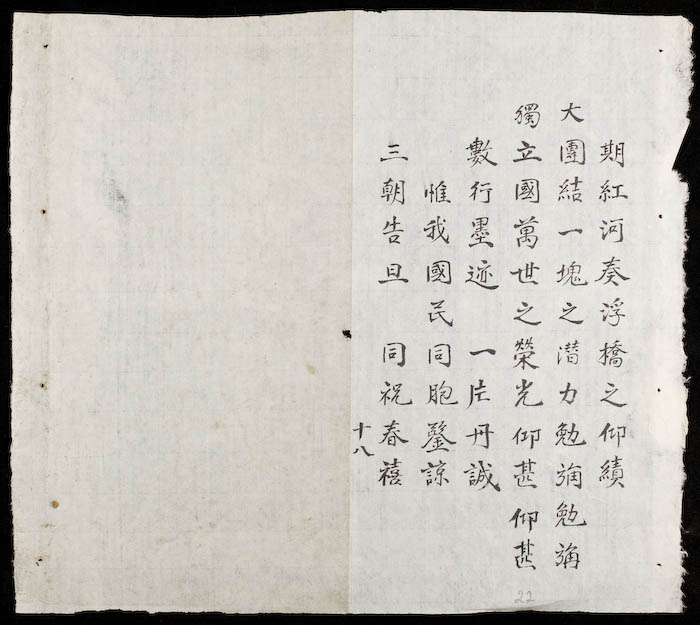 期紅河奏浮橋之仰績
大團結一塊之潛力勉旃勉旃
獨立國萬世之榮光仰甚仰甚
數行墨迹 一片丹誠
惟我國民同胞鑒諒
三朝告旦 同祝春禧
十八
22